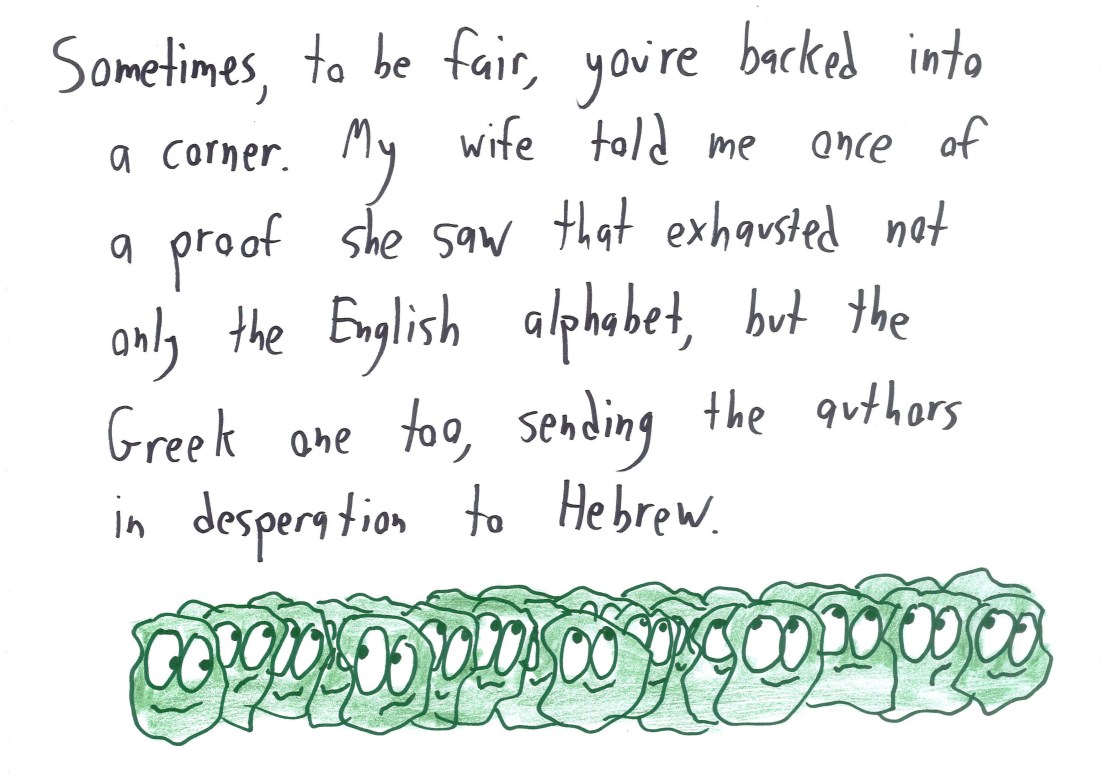 Sometimes, to be fair, you're backed into
a corner. My wife told me once of
a proof she saw that exhausted not
only the English alphabet, but the
Greek one too, sending the authors
in desperation to Hebrew.